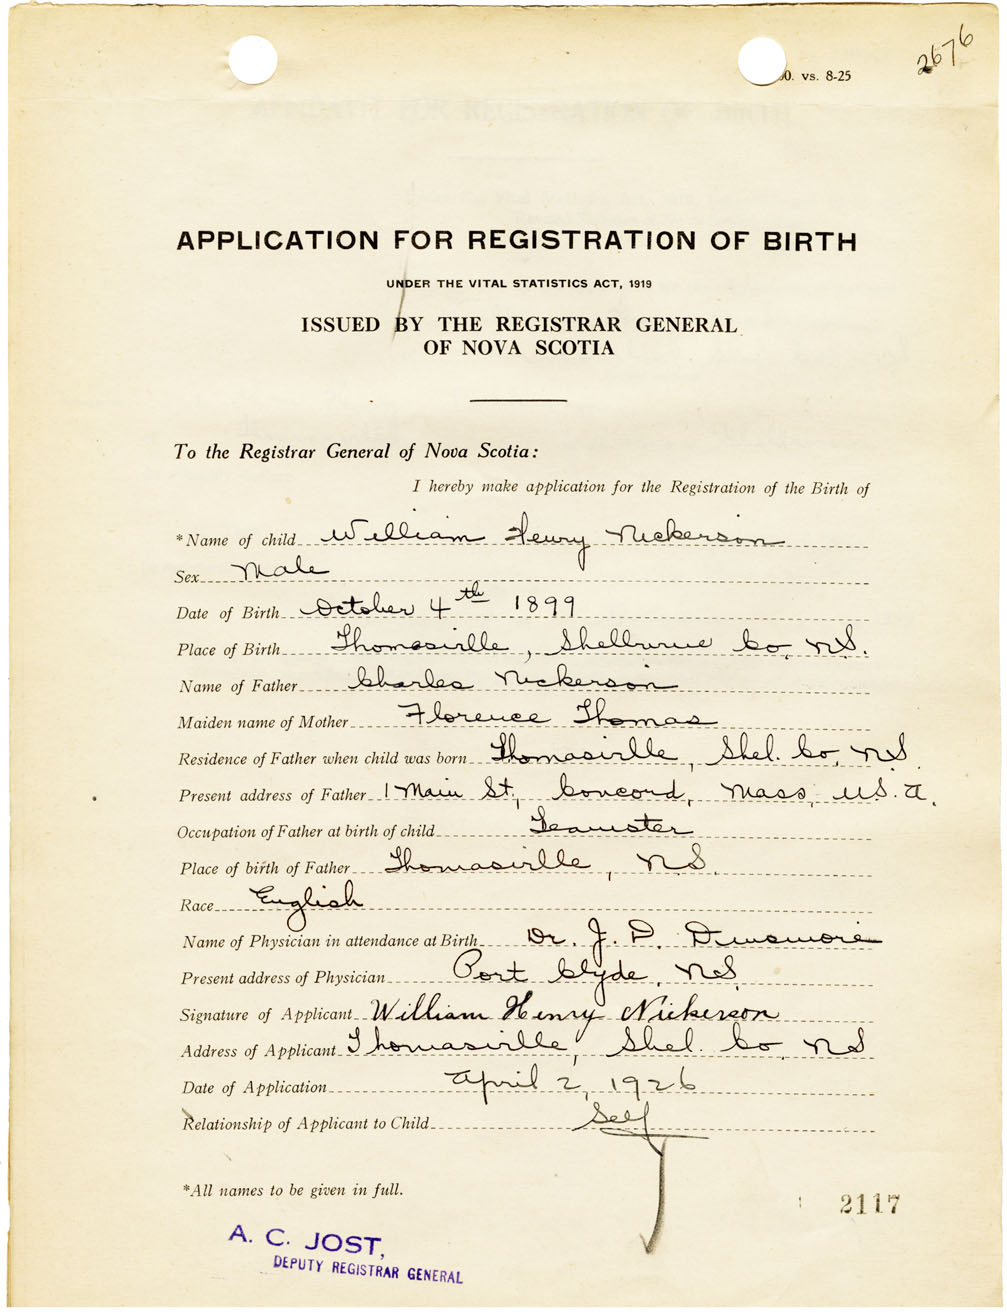 2676
00. vs. 8-25
APPLICATION FOR REGISTRATION OF BIRTH
UNDER THE VITAL STATISTICS ACT, 1919
ISSUED BY THE REGISTRAR GENERAL
OF NOVA SCOTIA
To the Registrar General of Nova Scotia:
I hereby make application for the Registration of the Birth of
*Name of child William Henry Nickerson
Sex Male
Date of Birth October 4th 1899
Place of Birth Thomasville, Shelburne Co. N.S.
Name of Father Charles Nickerson
Maiden name of Mother Florence Thomas
Residence of Father when child was born Thomasville, Shel. Co, N.S
Present address of Father 1 Main St, Concord, Mass, U.S.A.
Occupation of Father at birth of child Teamster
Place of birth of Father Thomasville, N.S.
Race English
Name of Physician in attendance at Birth Dr. J. D. Dinsmore
Present address of Physician Port Clyde, N.S.
Signature of Applicant William Henry Nickerson
Address of Applicant Thomasville, Shel. Co, N.S
Date of Application April 2, 1926
Relationship of Applicant to Child Self
*All names to be given in full.
2117
A. C. JOST,
DEPUTY REGISTRAR GENERAL